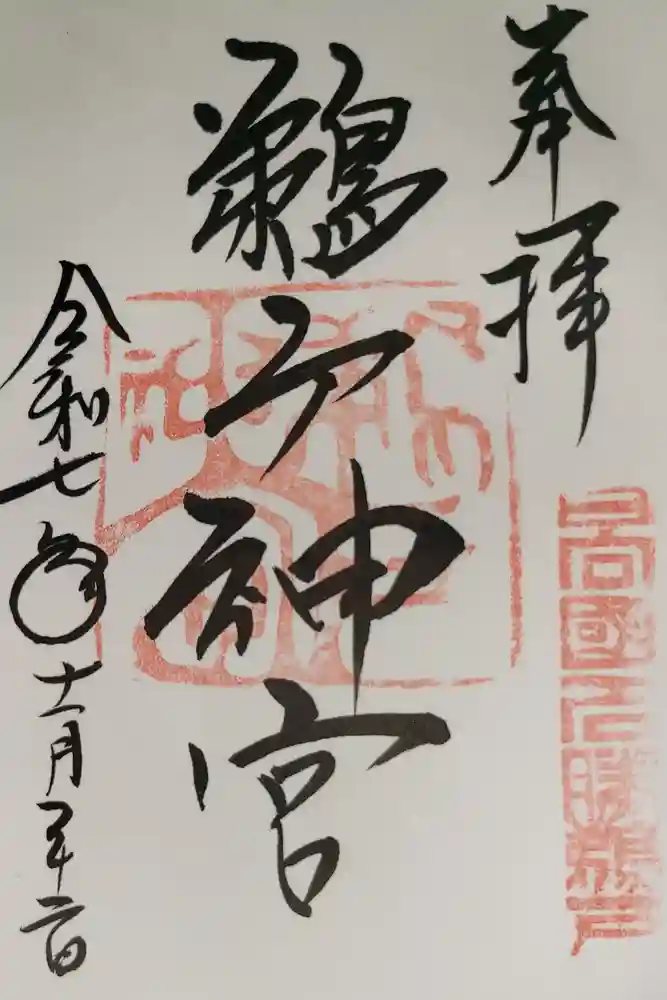 奉拝
日向國名勝鵜戸
鵜戸神宮
令和七年十一月二十二日